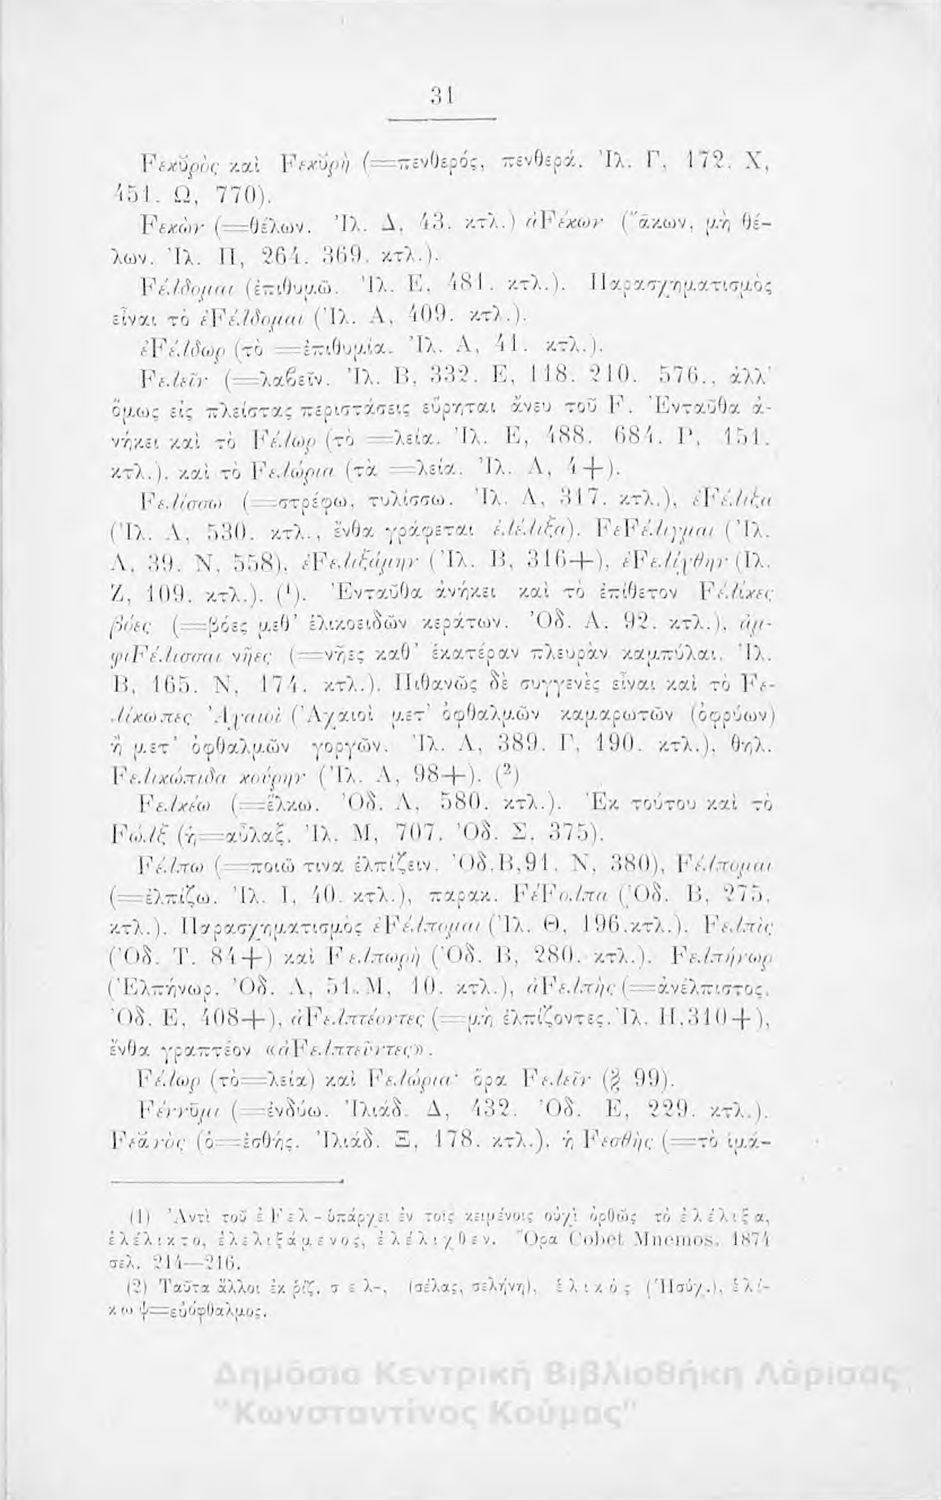 31
Fεκῡρὸς καὶ Fεκῡρὴ (=πενθερός, πενθερά. Ἰλ. Γ, 172. Χ,
451. Ω, 770).
Fεκὼν (=θέλων. Ἰλ. Δ, 43. κτλ.) ἀFέκων (ἄκων, μὴ θέ-
λων. Ἰλ. Π, 264. 369. κτλ.).
Fέλδομαι (ἐπιθυμῶ. Ἰλ. Ε, 481. κτλ.). Παρασχηματισμὸς
εἶναι τὸ ἐFέλδομαι (Ἰλ. Λ, 409. κτλ.).
ἐFέλδωρ (τὸ =ἐπιθυμία. Ἰλ. Α, 41. κτλ.).
Fελεῖν (=λαβεῖν. Ἰλ. Β, 332. Ε, 118. 210. 576., ἀλλ'
ὅμως εἰς πλείστας περιστάσεις εὕρηται ἄνευ τοῦ F. Ἐνταῦθα ἀ-
νήκει καὶ τὸ Fέλωρ (τὸ =λεία. Ἰλ. Ε, 488. 684. Ρ, 151.
κτλ.). καὶ τὸ Fελώρια (τὰ =λεία. Ἰλ. Α, 4+).
Fελίσσω (=στρέφω, τυλίσσω. Ἰλ. Λ, 317. κτλ.), ἐFέλιξα
(Ἰλ. Α, 530. κτλ., ἔνθα γράφεται ἐλέλιξα). FεFέλιγμαι (Ἰλ.
Λ, 39. Ν, 558), ἐFελιξάμην (Ἰλ. Β, 316+), ἐFελίχθην (Ἰλ.
Ζ, 109. κτλ.). (¹). Ἐνταῦθα ἀνήκει καὶ τὸ ἐπίθετον Fέλικες
βόες (=βόες μεθ' ἑλικοειδῶν κεράτων. Ὀδ. Α. 92. κτλ.), ἀμ-
φιFέλισσαι νῆες (=νῆες καθ' ἑκατέραν πλευρὰν καμπύλαι. Ἰλ.
Β, 165. Ν, 174. κτλ.). Πιθανῶς δὲ συγγενὲς εἶναι καὶ τὸ Fε-
λίκωπες Ἀχαιοὶ (Ἀχαιοὶ μετ' ὀφθαλμῶν καμαρωτῶν (ὀφρύων)
ἢ μετ' ὀφθαλμῶν γοργῶν. Ἰλ. Α, 389. Γ, 190. κτλ.), θηλ.
Fελικώπιδα κούρην (Ἰλ. Α, 98+). (²)
Fελκέω (=ἕλκω. Ὀδ. Λ, 580. κτλ.). Ἐκ τούτου καὶ τὸ
Fώλξ (ἡ=αὖλαξ, Ἰλ. Μ, 707. Ὀδ. Σ, 375).
Fέλπω (=ποιῶ τινα ἐλπίζειν. Ὀδ.Β,91. Ν, 380), Fέλπομαι
(=ἐλπίζω. Ἰλ. Ι, 40. κτλ.), παρακ. FέFολπα (Ὀδ. Β, 275.
κτλ.). Παρασχηματισμὸς ἐFέλπομαι (Ἰλ. Θ, 196.κτλ.). Fελπὶς
(Ὀδ. Τ. 84+) καὶ Fελπωρὴ (Ὀδ. Β, 280. κτλ.). Fελπήνωρ
(Ἐλπήνωρ. Ὀδ. Λ, 51. Μ, 10. κτλ.), ἀFελπὴς (=ἀνέλπιστος.
Ὀδ. Ε, 408+), ἀFελπτέοντες (=μὴ ἐλπίζοντες. Ἰλ. Η,310+),
ἔνθα γραπτέον «ἀFελπτεῦντες».
Fέλωρ (τὸ=λεία) καὶ Fελώρια· ὅρα Fελεῖν (§ 99).
Fέννῡμι (=ἐνδύω. Ἰλιάδ. Δ, 432. Ὀδ. Ε, 229. κτλ.).
Fεᾱνὸς (ὁ=ἐσθής. Ἰλιάδ. Ξ, 178. κτλ.), ἡ Fεσθὴς (=τὸ ἱμά-
(1) Ἀντὶ τοῦ ἐFελ- ὑπάρχει ἐν τοῖς κειμένοις οὐχὶ ὀρθῶς τὸ ἐλέλιξα,
ἐλέλικτο, ἐλελιξάμενος, ἐλέλιχθεν. Ὅρα Cobet Mnemos. 1874
σελ. 214—216.
(2) Ταῦτα ἄλλοι ἐκ ῥίζ. σελ-, (σέλας, σελήνη), ἑλικός (Ἡσύχ.), ἑλί-
κωψ=εὐόφθαλμος.
Δημόσια Κεντρική Βιβλιοθήκη Λάρισας
"Κωνσταντίνος Κούμας"